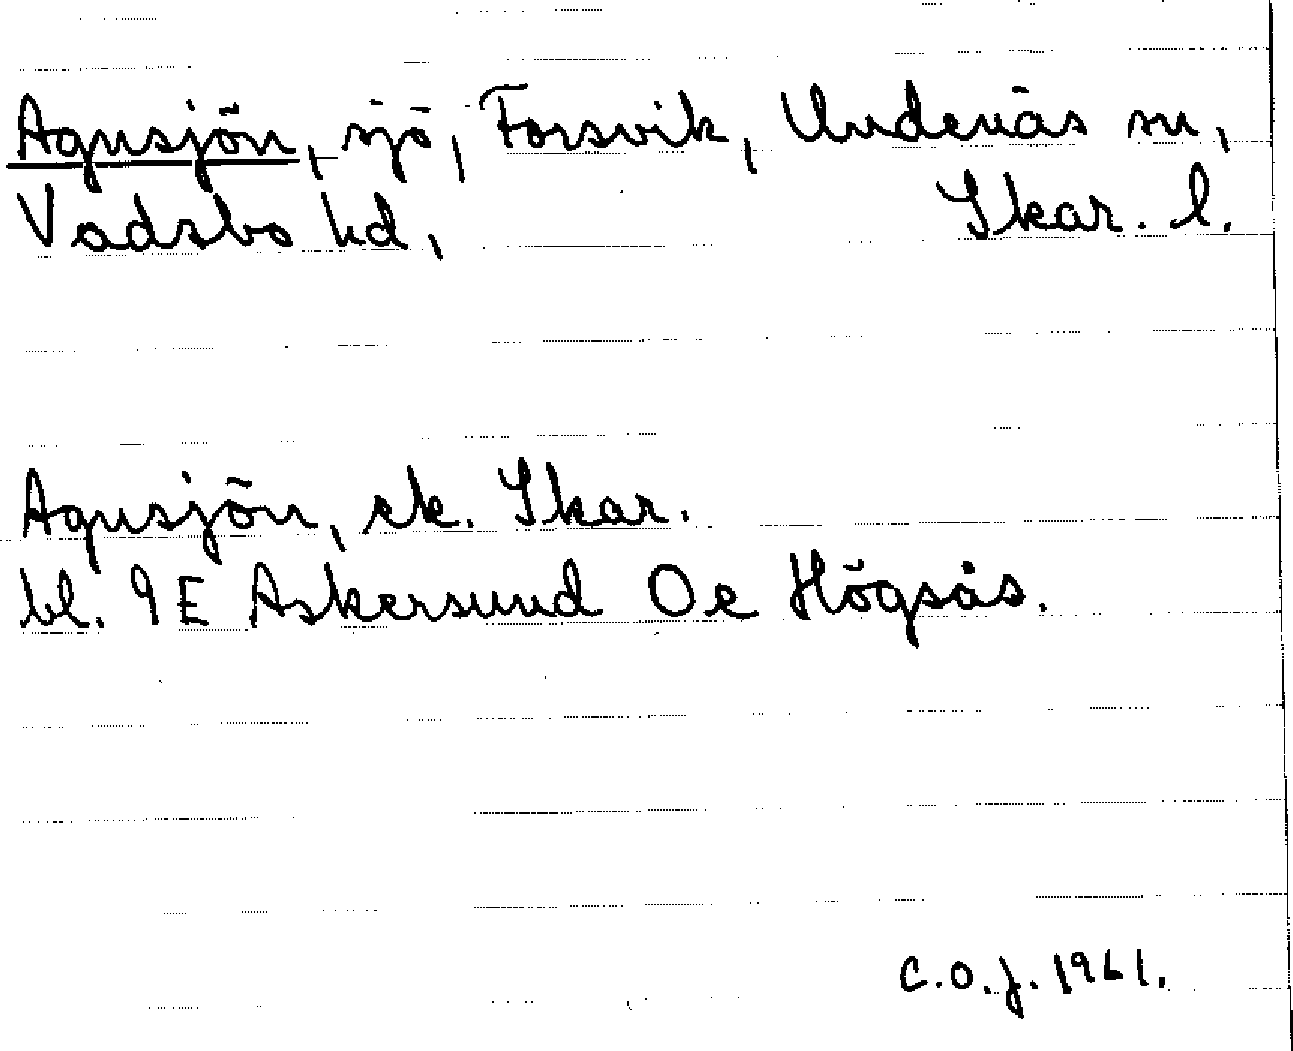 Agnsjön, sjö, Forsvik, Undenäs sn,
Vadsbo hd, Skar. l.
Agnsjön, ek. Skar.
bl. 9E Askersund Oe Högsås.
C.O.J. 1961.